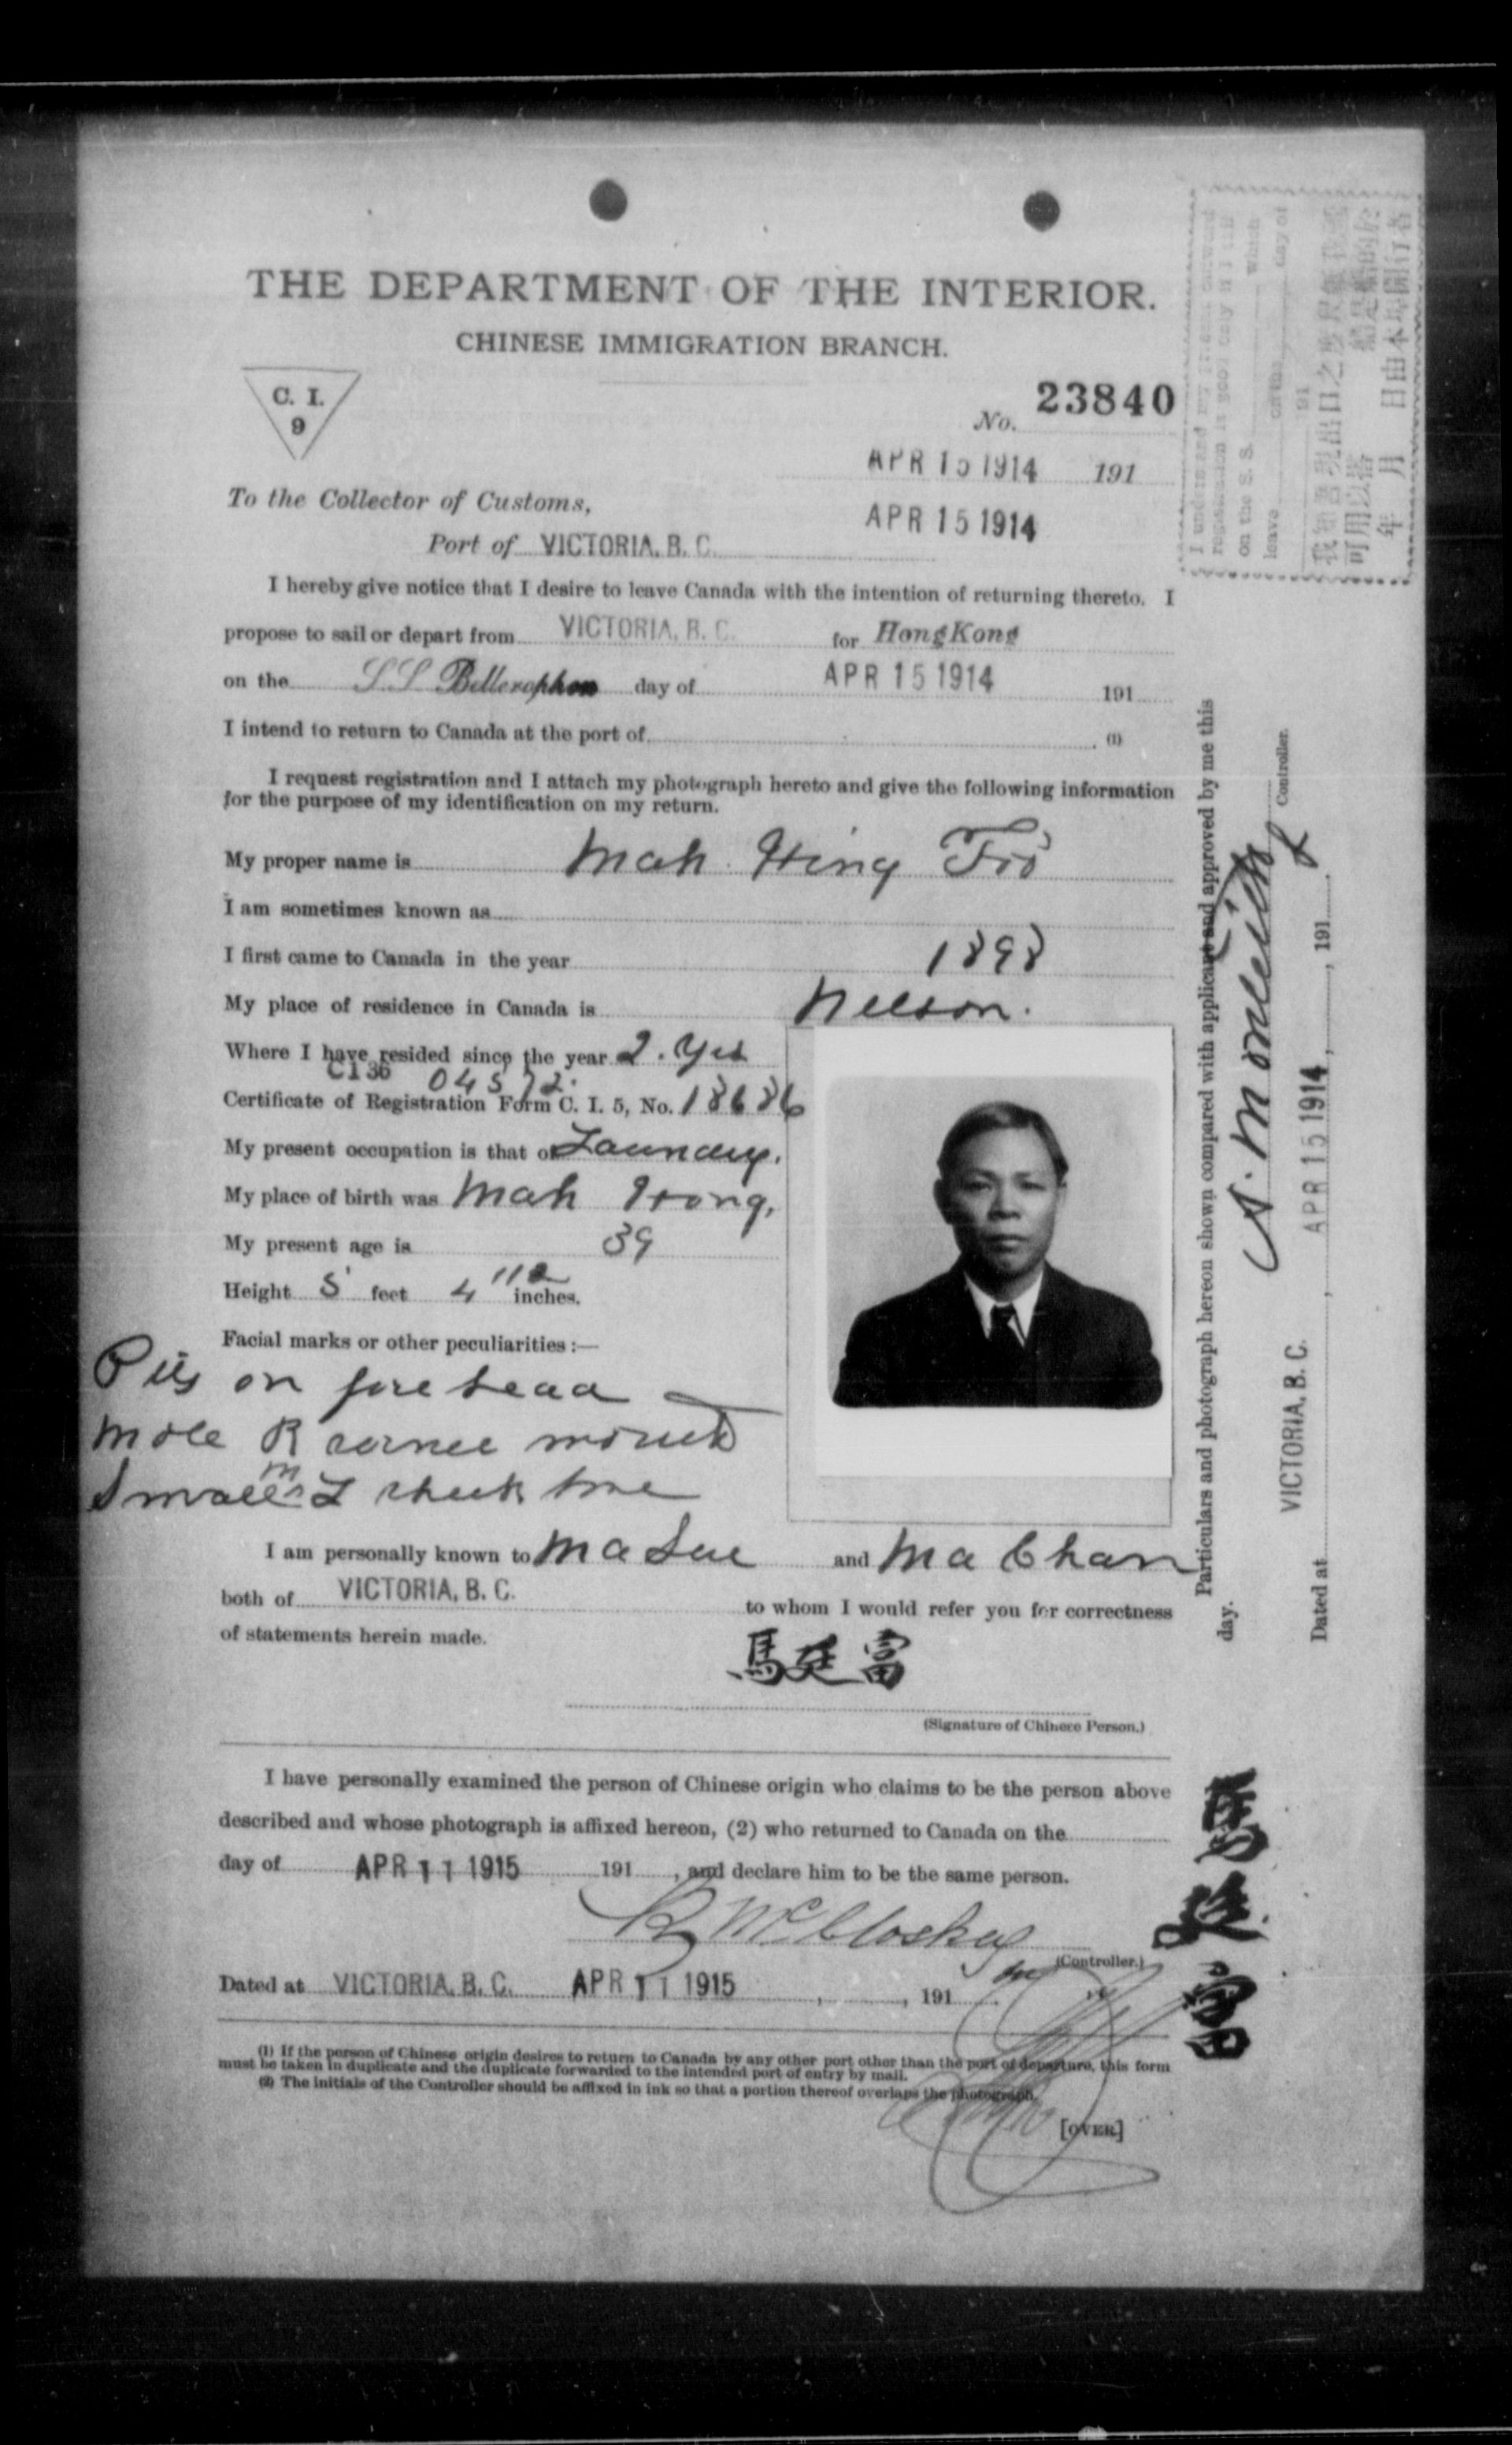 THE DEPARTMENT OF THE INTERIOR.
CHINESE IMMIGRATION BRANCH.
C. I.
9
No. 23840
APR 15 1914 191
To the Collector of Customs,
APR 15 1914
Port of VICTORIA, B. C.
I hereby give notice that I desire to leave Canada with the intention of returning thereto. I
propose to sail or depart from VICTORIA, B. C. for HongKong
on the SS Bellerophon day of APR 15 1914 191
I intend to return to Canada at the port of (1)
I request registration and I attach my photograph hereto and give the following information
for the purpose of my identification on my return.
My proper name is Mah Hing Foo
I am sometimes known as
I first came to Canada in the year 1898
My place of residence in Canada is Nelson.
Where I have resided since the year 2. yrs
CI 36 04572.
Certificate of Registration Form C. I. 5, No. 18686
My present occupation is that of Laundry.
My place of birth was Mah Hong,
My present age is 39
Height 5 feet 4 1/2 inches.
Facial marks or other peculiarities :—
Pits on forehead
mole R corner mouth
Small m L cheek bone
I am personally known to Ma Sue and Ma Chan
both of VICTORIA, B. C. to whom I would refer you for correctness
of statements herein made.
馬廷富
(Signature of Chinese Person.)
I have personally examined the person of Chinese origin who claims to be the person above
described and whose photograph is affixed hereon, (2) who returned to Canada on the
day of APR 11 1915 191 , and declare him to be the same person.
R McCloskey
(Controller.)
Dated at VICTORIA, B. C. APR 11 1915 , , 191
(1) If the person of Chinese origin desires to return to Canada by any other port other than the port of departure, this form
must be taken in duplicate and the duplicate forwarded to the intended port of entry by mail.
(2) The initials of the Controller should be affixed in ink so that a portion thereof overlaps the photograph.
[OVER]
Particulars and photograph hereon shown compared with applicant and approved by me this
day.
Controller.
Dated at VICTORIA, B. C. , APR 15 1914 , 191
馬廷富
on the S. S. which
leave on the day of
191